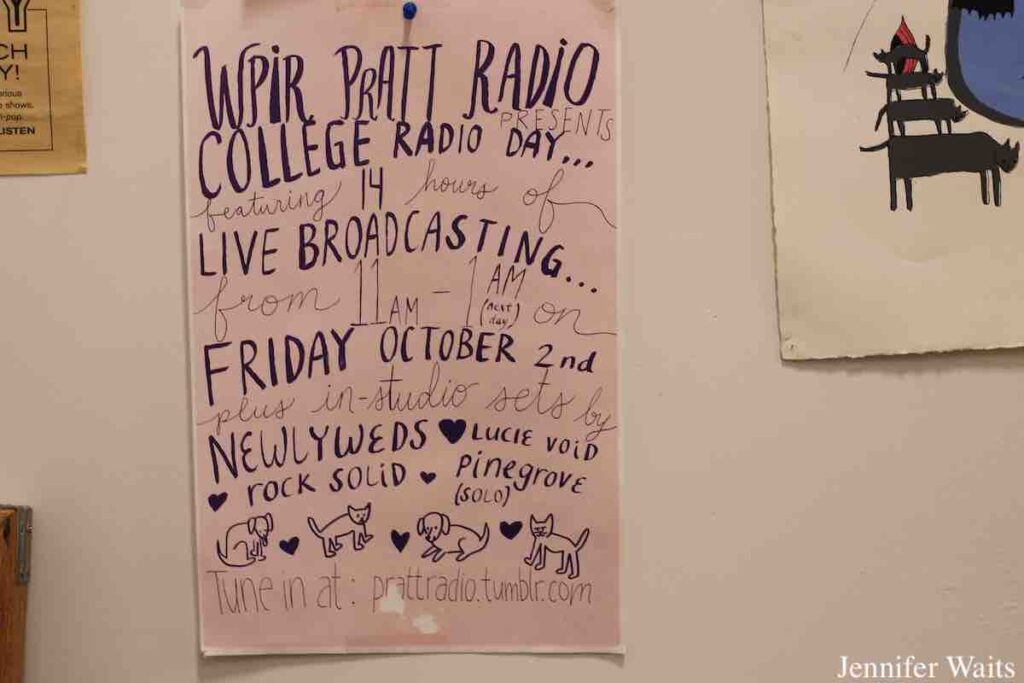 Y
CH
Y!
arious
e shows.
n-pop.
LISTEN
WPIR PRATT RADIO
PRESENTS
COLLEGE RADIO DAY...
featuring 14 hours of
LIVE BROADCASTING...
from 11AM - 1AM
(next
day) on
FRIDAY OCTOBER 2nd
plus in-studio sets by
NEWLYWEDS ♥ LUCIE VOID
♥ ROCK SOLID ♥ PINEGROVE
(SOLO)
Tune in at: prattradio.tumblr.com
Jennifer Waits